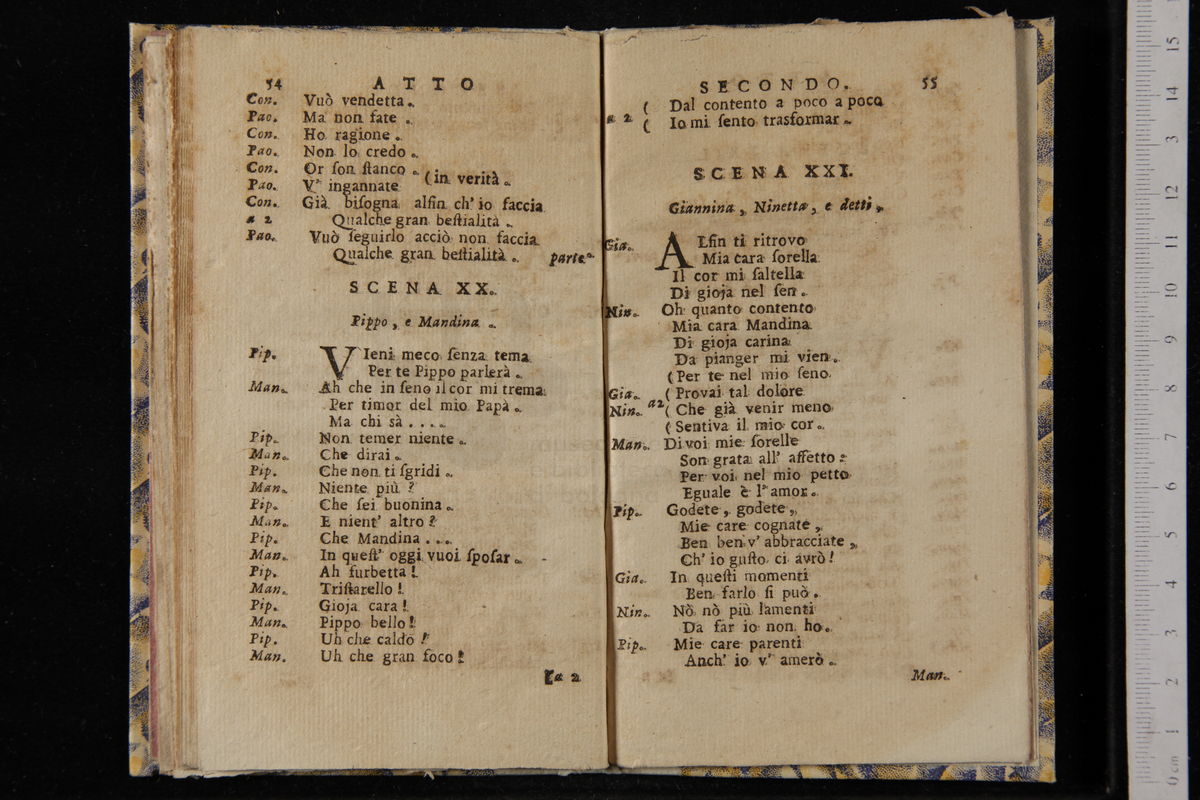 54 ATTO
Con. Vuò vendetta.
Pao. Ma non fate.
Con. Ho ragione.
Pao. Non lo credo.
Con. Or ſon ſtanco.
(in verità.
Pao. V' ingannate
Con. Già biſogna alfin ch' io faccia
a 2 Qualche gran beſtialità.
Pao. Vuò ſeguirlo acciò non faccia
Qualche gran beſtialità. parte.
SCENA XX.
Pippo, e Mandina.
Pip. VIeni meco ſenza tema
Per te Pippo parlerà.
Man. Ah che in ſeno il cor mi trema
Per timor del mio Papà.
Ma chi sà....
Pip. Non temer niente.
Man. Che dirai.
Pip. Che non ti ſgridi.
Man. Niente più?
Pip. Che ſei buonina.
Man. E nient' altro?
Pip. Che Mandina...
Man. In queſt' oggi vuoi ſpoſar.
Pip. Ah furbetta!
Man. Triſtarello!
Pip. Gioja cara!
Man. Pippo bello!
Pip. Uh che caldo!
Man. Uh che gran foco!
[a 2
SECONDO. 55
( Dal contento a poco a poco
a 2
( Io mi ſento trasformar.
SCENA XXI.
Giannina, Ninetta, e detti.
Gia. ALfin ti ritrovo
Mia cara ſorella
Il cor mi ſaltella
Di gioja nel ſen.
Nin. Oh quanto contento
Mia cara Mandina
Di gioja carina
Da pianger mi vien.
(Per te nel mio ſeno
Gia. (Provai tal dolore
Nin. a2 (Che già venir meno
(Sentiva il mio cor.
Man. Di voi mie ſorelle
Son grata all' affetto:
Per voi nel mio petto
Eguale è l' amor.
Pip. Godete, godete,
Mie care cognate,
Ben ben v' abbracciate,
Ch' io guſto ci avrò!
Gia. In queſti momenti
Ben farlo ſi può.
Nin. Nò nò più lamenti
Da far io non ho.
Pip. Mie care parenti
Anch' io v' amerò.
Man.
0 cm 1 2 3 4 5 6 7 8 9 10 11 12 13 14 15